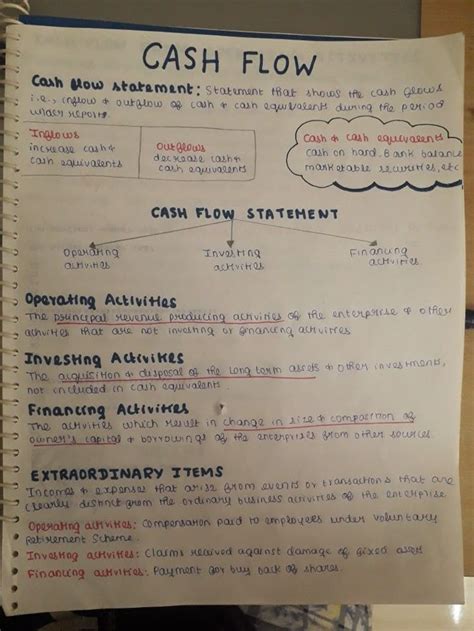 CASH FLOW
Cash flow statement: Statement that shows the cash flows
i.e., inflow & outflow of cash & cash equivalents during the period
under report.
Inflows
increase cash &
cash equivalents
Outflows
decrease cash &
cash equivalents
Cash & cash equivalents
cash on hand, Bank balance
marketable securities, etc
CASH FLOW STATEMENT
Operating
activities
Investing
activities
Financing
activities
Operating Activities
The principal revenue producing activities of the enterprise & other
activities that are not investing or financing activities
Investing Activities
The acquisition & disposal of the long term assets & other investments,
not included in cash equivalents.
Financing Activities
The activities which result in change in size & composition of
owner's capital & borrowings of the enterprise from other sources.
EXTRAORDINARY ITEMS
Incomes & expenses that arise from events or transactions that are
clearly distinct from the ordinary business activities of the enterprise
Operating activities: Compensation paid to employees under voluntary
Retirement Scheme.
Investing activities: Claims received against damage of fixed asset
Financing activities: Payment for buy back of shares.